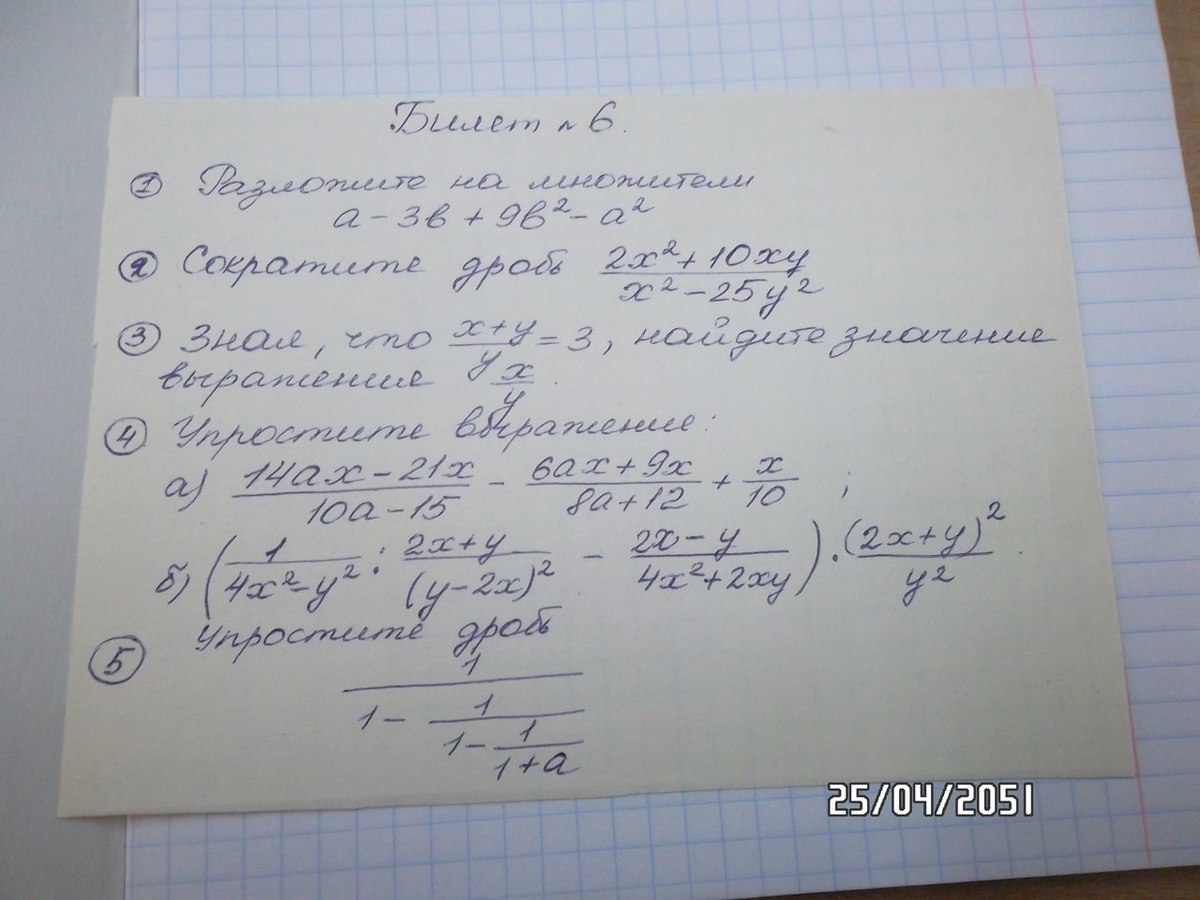 Билет № 6.
① Разложите на множители
a - 3b + 9b² - a²
② Сократите дробь (2x² + 10xy)/(x² - 25y²)
③ Зная, что (x+y)/y = 3, найдите значение
выражения x/y.
④ Упростите выражение:
а) (14ax - 21x)/(10a - 15) - (6ax + 9x)/(8a + 12) + x/10 ;
б) (1/(4x² - y²) : (2x+y)/(y-2x)² - (2x-y)/(4x²+2xy)) · (2x+y)²/y².
⑤ Упростите дробь
1/(1 - 1/(1 - 1/(1+a)))
25/04/2051